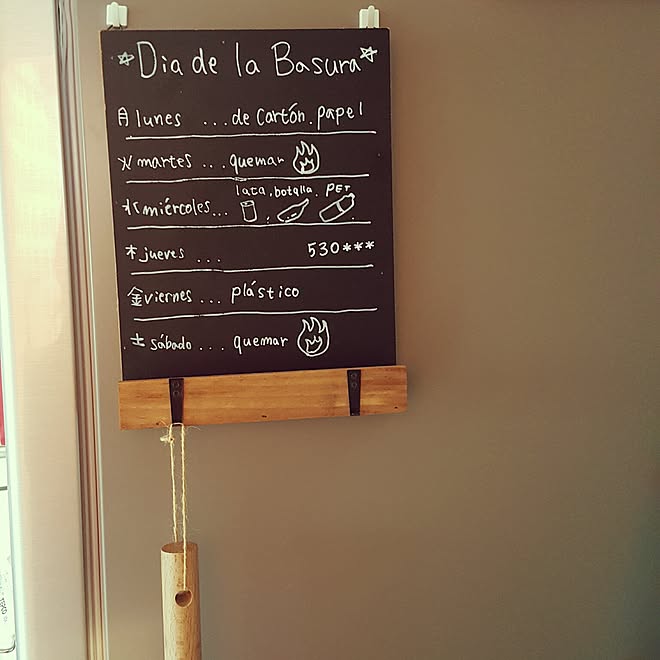 ☆Dia de la Basura☆
月 lunes ... de cartón. papel
火 martes ... quemar
lata. botella. PET
水 miércoles...
木 jueves ... 530***
金 viernes ... plástico
土 sábado .... quemar